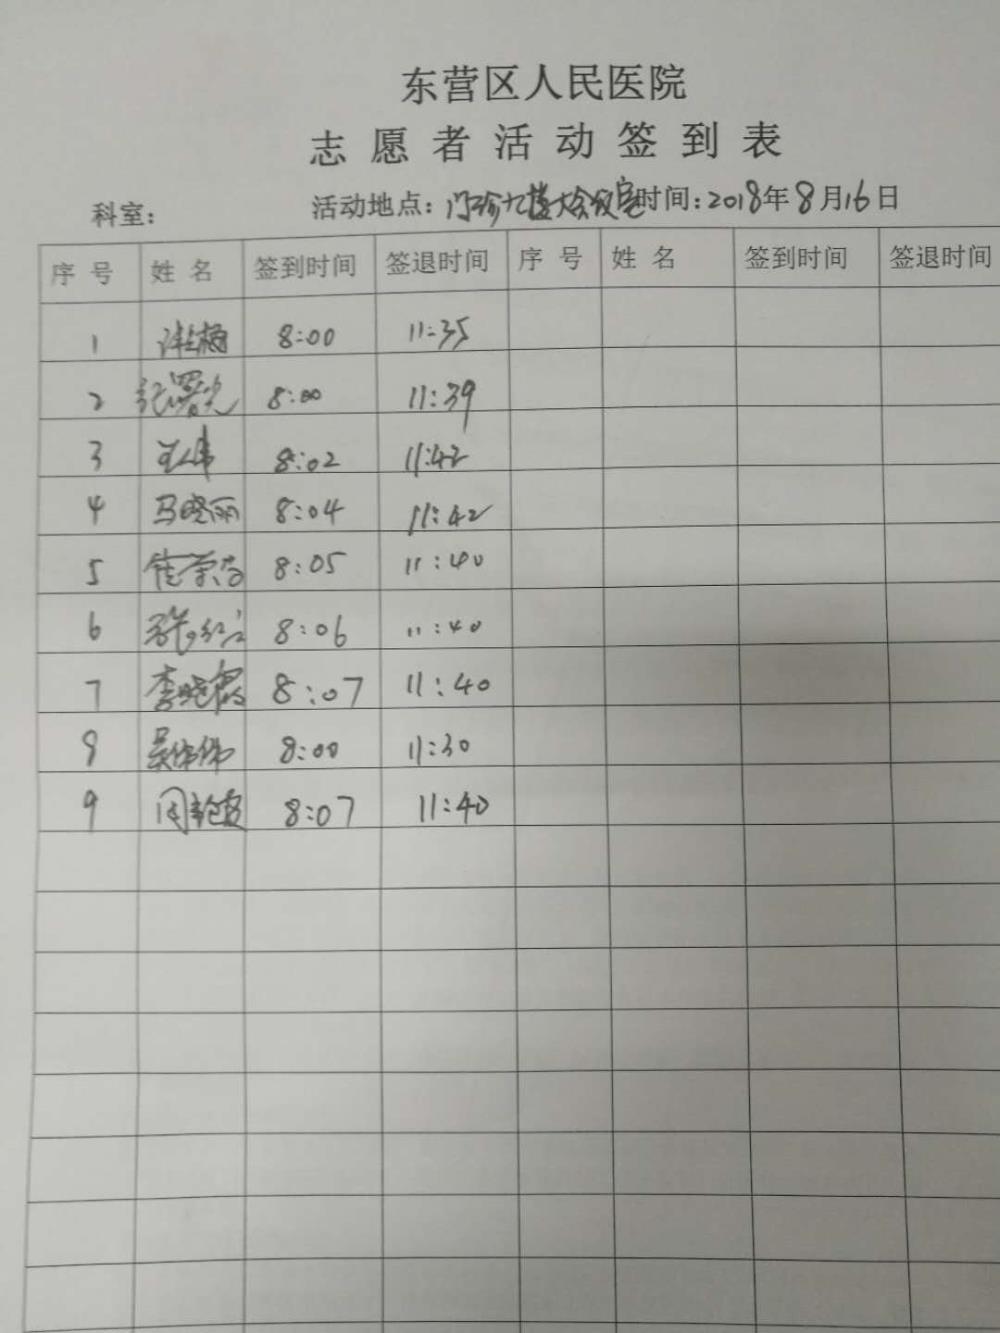 东营区人民医院
志愿者活动签到表
科室: 活动地点: 门诊九楼大会议室 时间: 2018年8月16日
序号 姓名 签到时间 签退时间 序号 姓名 签到时间 签退时间
1 8:00 11:35
2 纪曙光 8:00 11:39
3 8:02 11:42
4 马晓丽 8:04 11:42
5 8:05 11:40
6 8:06 11:40
7 李晓霞 8:07 11:40
8 吴伟伟 8:00 11:30
9 8:07 11:40